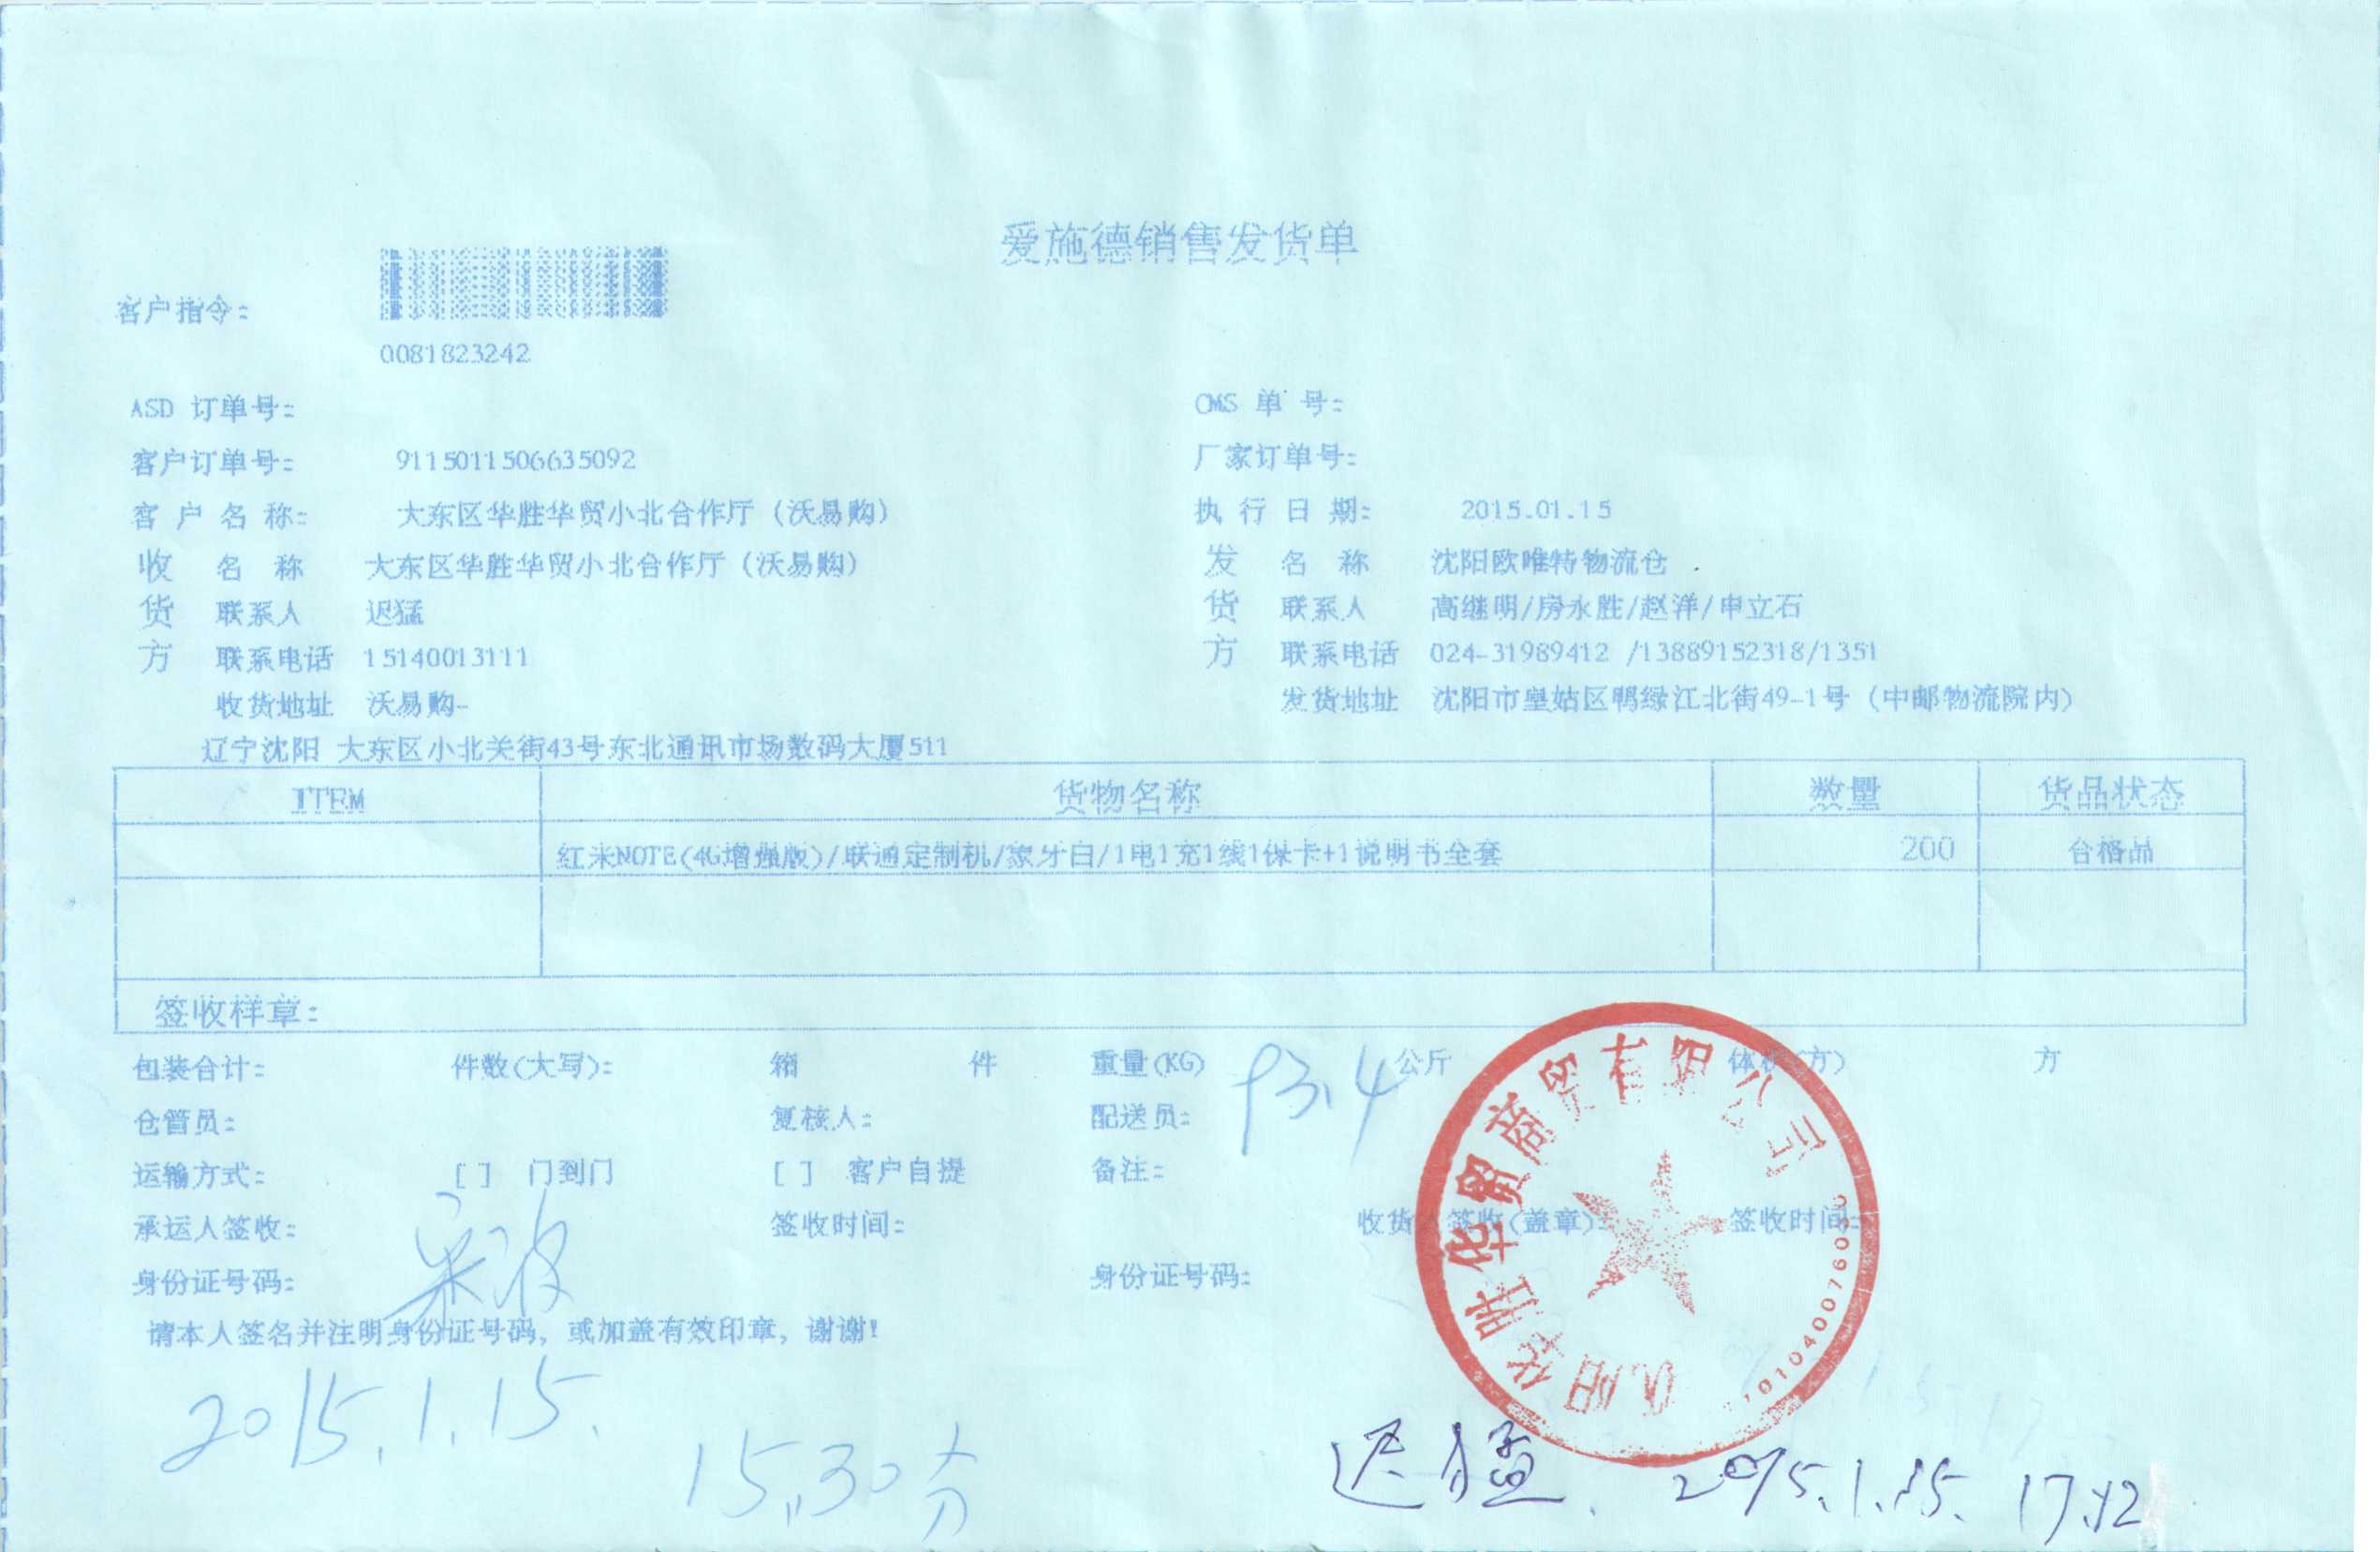 爱施德销售发货单
客户指令:
0081823242
ASD 订单号:
CMS 单 号:
客户订单号: 9115011506635092
厂家订单号:
客 户 名 称: 大东区华胜华贸小北合作厅（沃易购）
执 行 日 期: 2015.01.15
收 名 称 大东区华胜华贸小北合作厅（沃易购）
发 名 称 沈阳欧唯特物流仓
货 联系人 迟猛
货 联系人 高继明/房永胜/赵洋/申立石
方 联系电话 15140013111
方 联系电话 024-31989412 /13889152318/1351
收货地址 沃易购-
发货地址 沈阳市皇姑区鸭绿江北街49-1号（中邮物流院内）
辽宁沈阳 大东区小北关街43号东北通讯市场数码大厦511
ITEM 货物名称 数量 货品状态
红米NOTE(4G增强版)/联通定制机/象牙白/1电1充1线1保卡+1说明书全套 200 合格品
签收样章:
包装合计: 件数(大写): 箱 件 重量(KG) 93.4 公斤 体积(方) 方
仓管员: 复核人: 配送员:
运输方式: [ ] 门到门 [ ] 客户自提 备注:
承运人签收: 签收时间: 收货人签收(盖章): 签收时间:
身份证号码: 身份证号码:
请本人签名并注明身份证号码，或加盖有效印章，谢谢!
沈阳华胜华贸商贸有限公司
2015.1.15.
15.30分
迟猛. 2015.1.15. 17.12